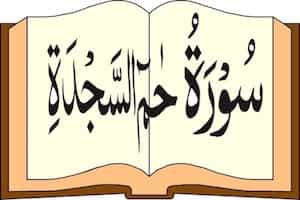 سُوْرَةُ حٰمٓ السَّجْدَةِ